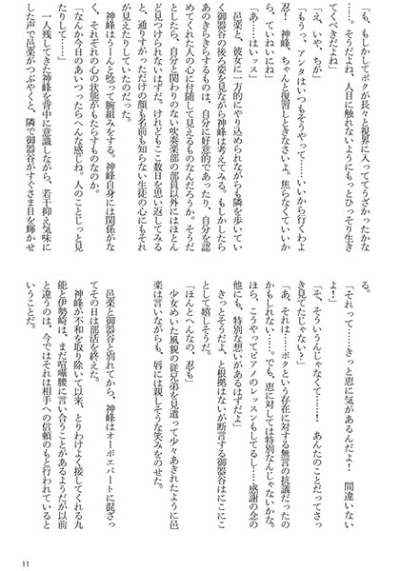 「も、もしかしてボクが長々と視界に入っててうざかったかな
……。そうだよね、人目に触れないようにもっとひっそり生き
てくべきだよね」
「え、いや、ちが」
「もうっ、アンタはいつもそうやって……いいから行くわよ
忍！　神峰、ちゃんと復習しときなさいよ。焦らなくていいか
ら、ていねいにね」
「あ……はいッス」
　邑楽と、彼女に一方的にやり込められながらも隣を歩いてい
く御器谷の後ろ姿を見ながら神峰は考えてみる。もしかしたら
あのきらきらするものは、自分に好意的であったり、自分を認
めてくれた人の心に付随して見えるものなんだろうか。そうだ
としたら、自分と関わりのない吹奏楽部の部員以外にはほとん
ど見つけられないはずだ。けれどもここ数日を思い返してみる
と、通りすがっただけの顔も名前も知らない生徒の心にもそれ
が見えたりしていたのだった。
　神峰はうーんと唸って、腕組みをする。神峰自身には関係がな
く、それぞれの心の状態がもたらすものなのか。
「なんか今日のあいつったらへんな感じね。人のことじっと見
たりして……」
　一人残してきた神峰を背中に意識しながら、若干抑え気味に
した声で邑楽がつぶやくと、隣で御器谷がすぐさま目を輝かせ
る。
「それって……きっと恵に気があるんだよ！　間違いない
よ！」
「そ、そういうんじゃなくて……！　あんたのことだってさっ
き見てたじゃない？」
「あ、それは……ボクという存在に対する無言の抗議だったの
かもしれない……。でも、恵に対しては特別なんじゃないかな。
ほら、こうやってピアノのレッスンもしてるし……感謝の念の
他にも、特別な想いがあるはずだよ」
　きっとそうだよ、と根拠はないが断言する御器谷はにこにこ
として嬉しそうだ。
「ほんとへんなの、忍も」
　少女めいた風貌の従兄弟を見遣って少々あきれたように邑
楽は言いながらも、唇には親しそうな笑みをのせた。
　邑楽と御器谷と別れてから、神峰はオーボエパートに混ざっ
てその日は部活を終えた。
　神峰が不和を取り除いて以来、とりわけよく接してくれる九
能と伊勢崎は、まだ喧嘩腰に言い合うことがあるようだが以前
と違うのは、今ではそれは相手への信頼のもと行われていると
いうことだ。
11